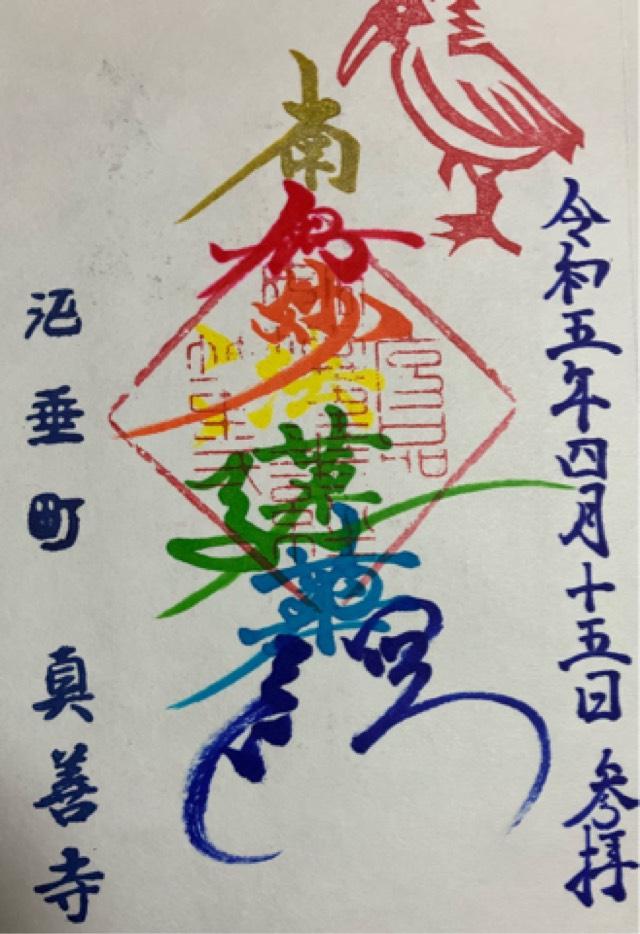 令和五年四月十五日 参拝
南無妙法蓮華経
沼垂町 真善寺